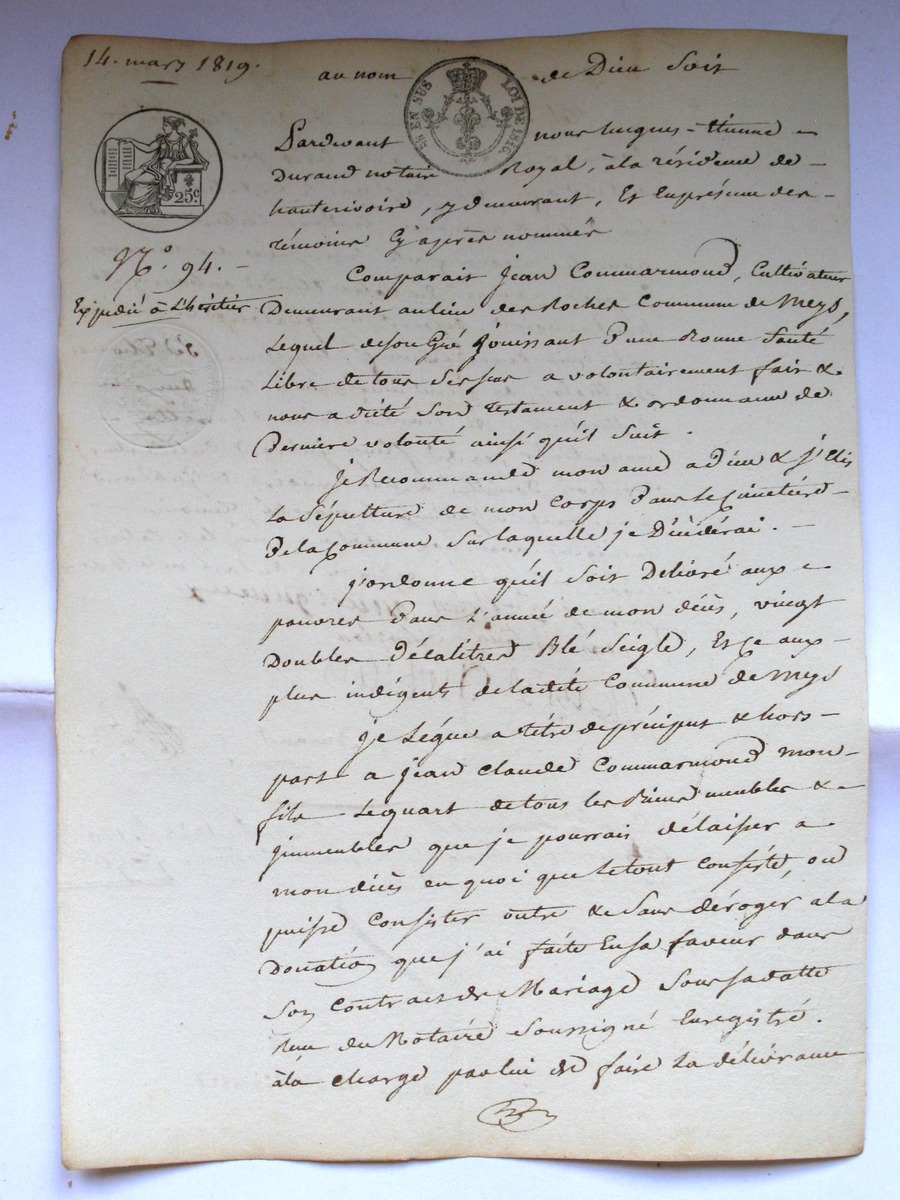 14. mars 1819.
au nom de Dieu soit
EN SUS LOI DE 1816
25c.
Pardevant nous hugues-Etienne
Durand notaire Royal, à la résidence de
hauterivoire, y demeurant, Et En présence des
témoins Cy après nommés
N.° 94.
Comparait Jean Commarmond, Cultivateur
Expédié à L'héritier
Demeurant au lieu des Roches Commune de Meys,
Lequel de son Gré Jouissant d'une Bonne Santé
Libre de tous ses sens a volontairement fait &
nous a dicté son testament & ordonnance de
Dernière volonté ainsi qu'il suit.
Je Recommande mon ame a Dieu & j'Elis
La Sépulture de mon Corps Dans le Cimetière
De la Commune Sur laquelle je Décéderai.
j'ordonne qu'il soit Delivré aux
pauvres Dans L'année de mon décès, vingt
Doubles Décalitres Blé Seigle, Et Ce aux
plus indigents de ladite Commune de Meys
Je Légue a titre de préciput & hors
part a Jean Claude Commarmond mon
fils Le quart de tous les Biens meubles &
jmmeubles que je pourrais délaisser a
mon décès en quoi que le tout Consiste, ou
puisse Consister outre & Sans déroger a la
Donation que j'ai faite En sa faveur dans
Son Contract de Mariage Sous sa datte
Reçu du Notaire Soussigné Enregistré.
à la charge par lui de faire La délivrance